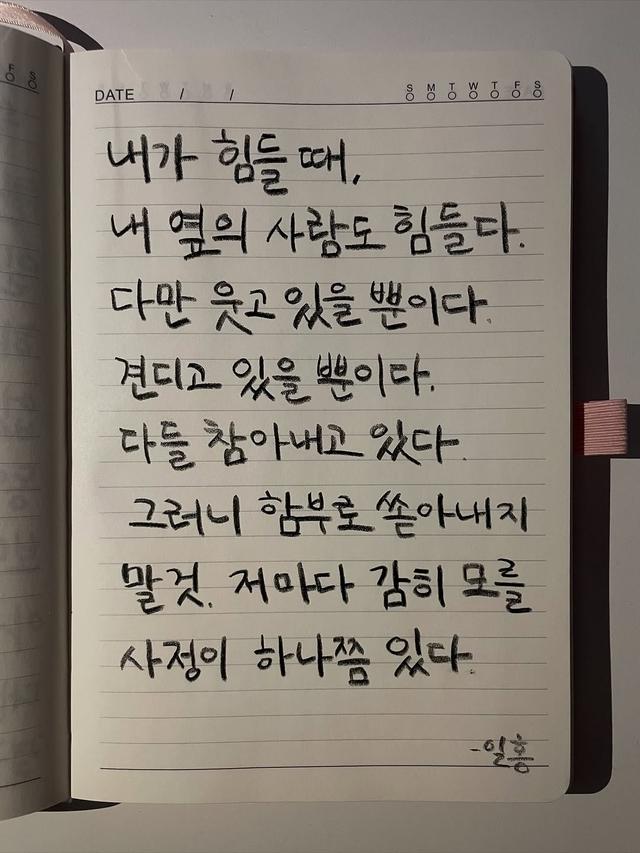 F S
DATE / /
S M T W T F S
내가 힘들 때,
내 옆의 사람도 힘들다.
다만 웃고 있을 뿐이다.
견디고 있을 뿐이다.
다들 참아내고 있다.
그러니 함부로 쏟아내지
말것. 저마다 감히 모를
사정이 하나쯤 있다.
-일홍